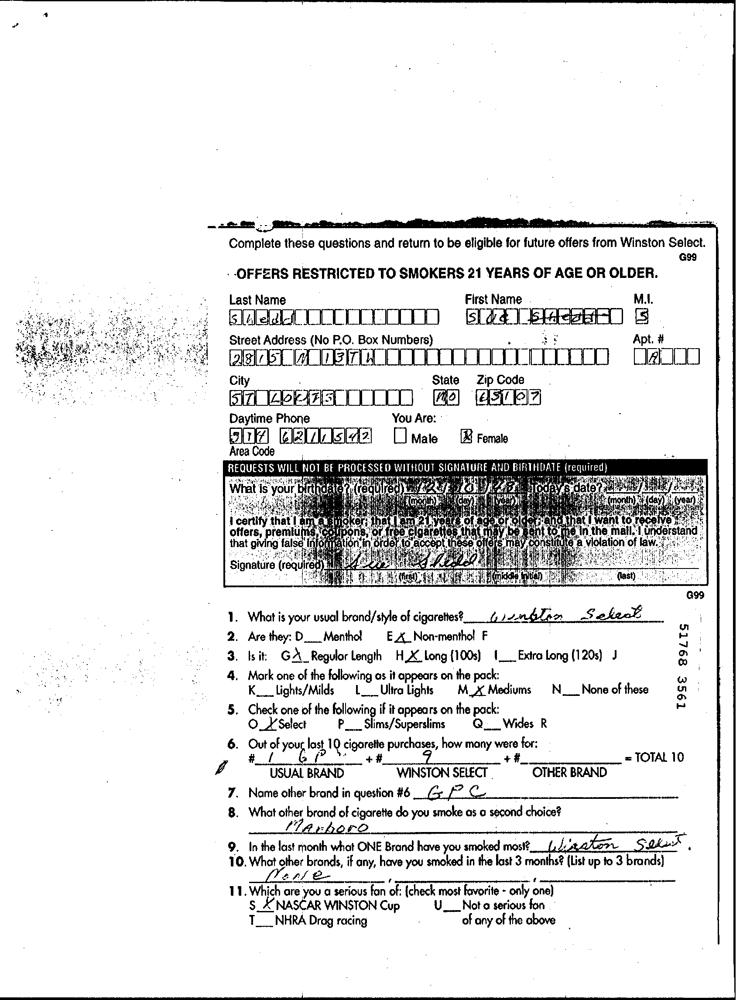 Complete these questions and return to be eligible for future offers from Winston Select.
G99
OFFERS RESTRICTED TO SMOKERS 21 YEARS OF AGE OR OLDER.
Last Name First Name M.I.
S
Street Address (No P.O. Box Numbers) Apt. #
2815 N 13TH A
City State Zip Code
MO 63107
Daytime Phone You Are:
621 1542 Male X Female
Area Code
REQUESTS WILL NOT BE PROCESSED WITHOUT SIGNATURE AND BIRTHDATE (required)
What is your birthdate? (required) Today's date?
(month) (day) (year) (month) (day) (year)
I certify that I am a smoker; that I am 21 years of age or older; and that I want to receive
offers, premiums, coupons, or free cigarettes that may be sent to me in the mail. I understand
that giving false information in order to accept these offers may constitute a violation of law.
Signature (required) Sue
(first) (middle initial) (last)
G99
1. What is your usual brand/style of cigarettes? Winston Select
2. Are they: D Menthol E X Non-menthol F
3. Is it: G X Regular Length H X Long (100s) I Extra Long (120s) J
4. Mark one of the following as it appears on the pack:
K Lights/Milds L Ultra Lights M X Mediums N None of these
5. Check one of the following if it appears on the pack:
O X Select P Slims/Superslims Q Wides R
6. Out of your last 10 cigarette purchases, how many were for:
# 1 GP + # 9 + # = TOTAL 10
USUAL BRAND WINSTON SELECT OTHER BRAND
7. Name other brand in question #6 GPC
8. What other brand of cigarette do you smoke as a second choice?
Marboro
9. In the last month what ONE Brand have you smoked most? Winston Select.
10. What other brands, if any, have you smoked in the last 3 months? (List up to 3 brands)
None , ,
11. Which are you a serious fan of: (check most favorite - only one)
S X NASCAR WINSTON Cup U Not a serious fan
T NHRA Drag racing of any of the above
51768 3561